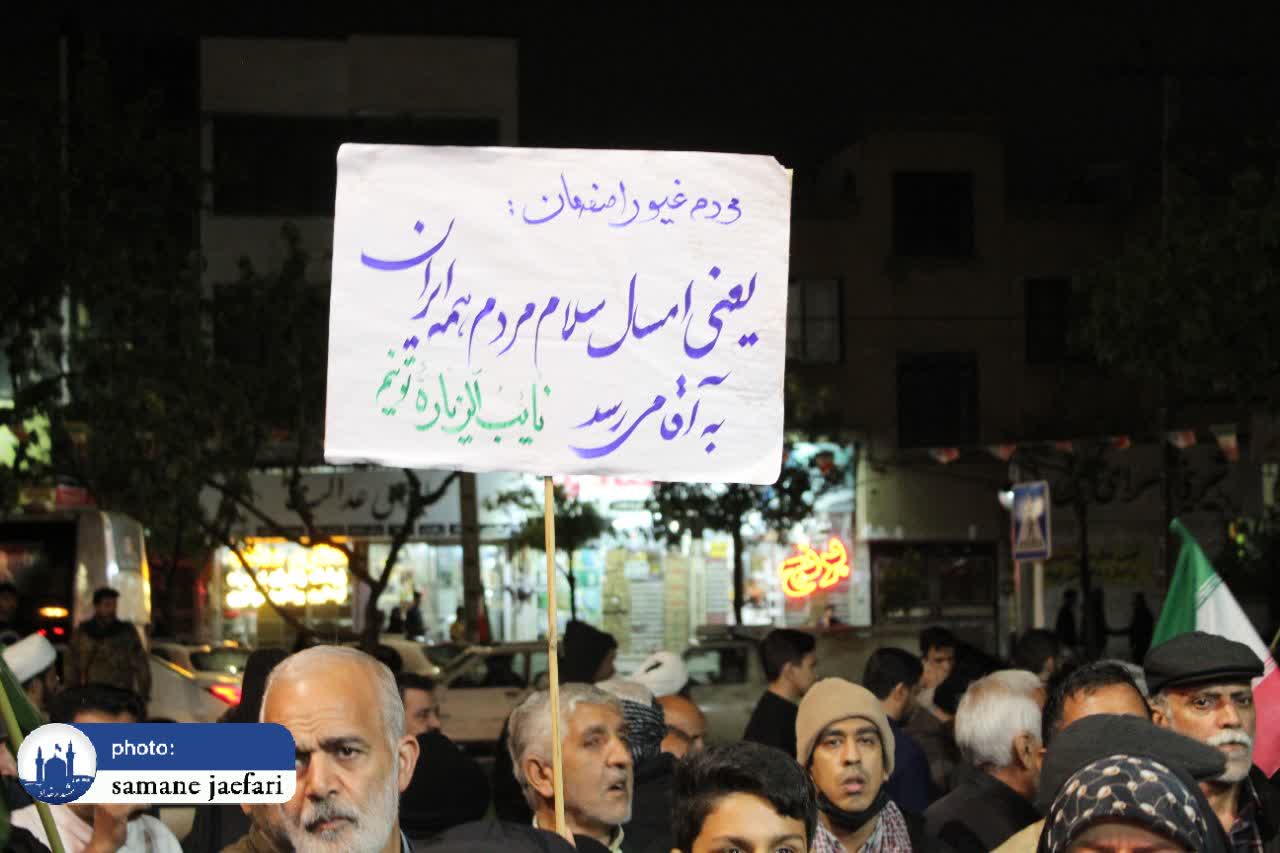 مردم غیور اصفهان:
یعنی امسال سلام مردم همه ایران
به آقا می رسد
نایب الزیارهٔ توئیم
photo:
samane jaefari